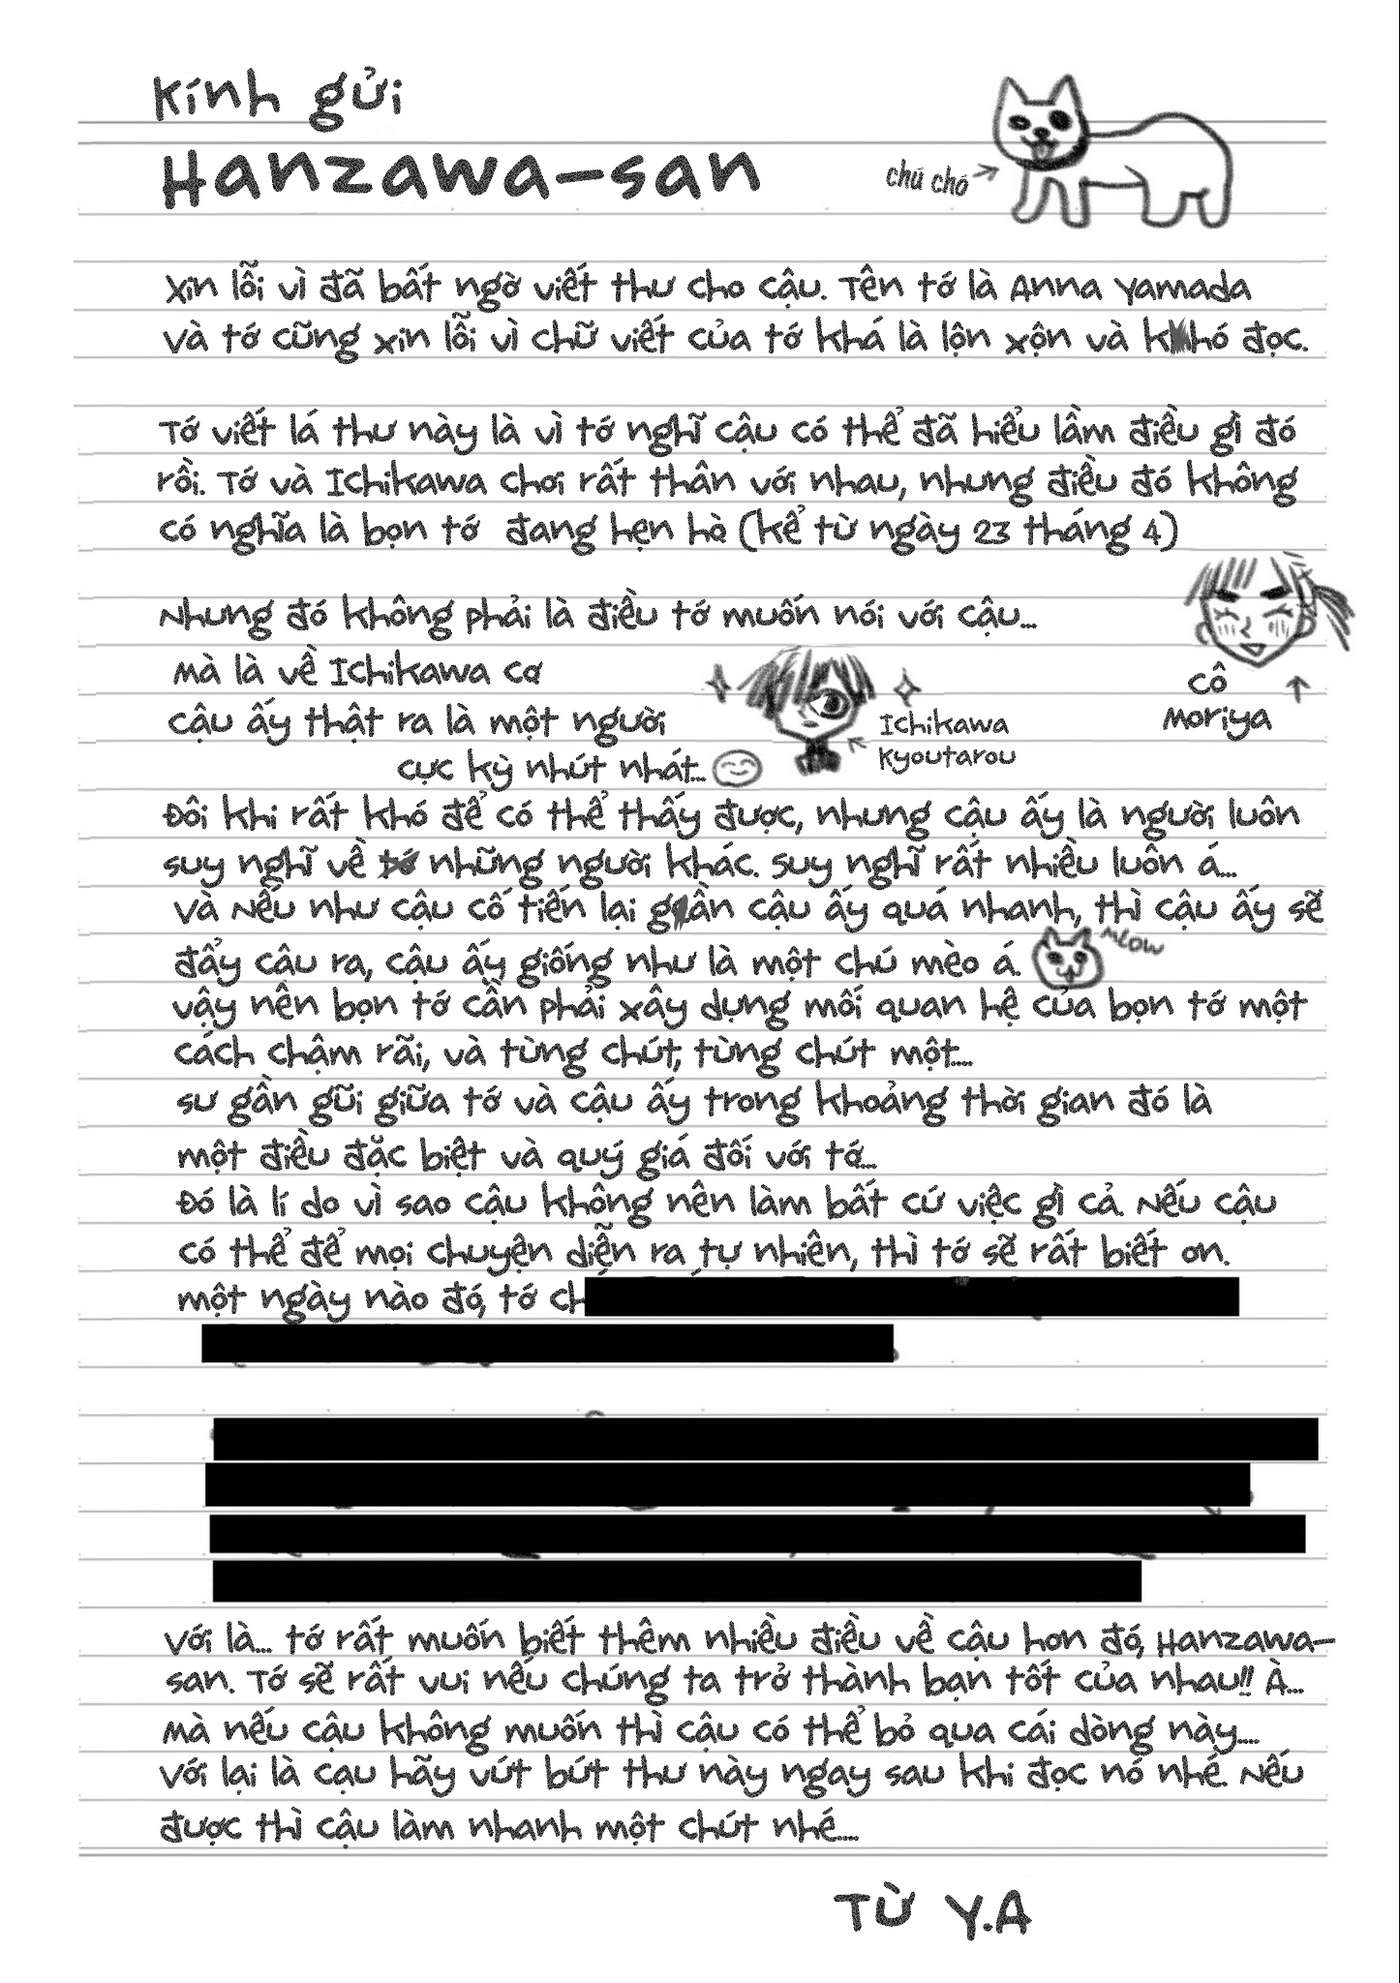 Kính gửi
Hanzawa-san
chú chó
Xin lỗi vì đã bất ngờ viết thư cho cậu. Tên tớ là Anna Yamada
và tớ cũng xin lỗi vì chữ viết của tớ khá là lộn xộn và khó đọc.
Tớ viết lá thư này là vì tớ nghĩ cậu có thể đã hiểu lầm điều gì đó
rồi. Tớ và Ichikawa chơi rất thân với nhau, nhưng điều đó không
có nghĩa là bọn tớ đang hẹn hò (kể từ ngày 23 tháng 4)
Nhưng đó không phải là điều tớ muốn nói với cậu...
cô
Moriya
mà là về Ichikawa cơ
cậu ấy thật ra là một người
cực kỳ nhút nhát...
Ichikawa
Kyoutarou
Đôi khi rất khó để có thể thấy được, nhưng cậu ấy là người luôn
suy nghĩ về tớ những người khác. Suy nghĩ rất nhiều luôn á...
và Nếu như cậu cố tiến lại gần cậu ấy quá nhanh, thì cậu ấy sẽ
đẩy câu ra, cậu ấy giống như là một chú mèo á.
Meow
vậy nên bọn tớ cần phải xây dựng mối quan hệ của bọn tớ một
cách chậm rãi, và từng chút, từng chút một....
sư gần gũi giữa tớ và cậu ấy trong khoảng thời gian đó là
một điều đặc biệt và quý giá đối với tớ...
Đó là lí do vì sao cậu không nên làm bất cứ việc gì cả. Nếu cậu
có thể để mọi chuyện diễn ra tự nhiên, thì tớ sẽ rất biết ơn.
một ngày nào đó, tớ
Với là... tớ rất muốn biết thêm nhiều điều về cậu hơn đó, Hanzawa-
san. Tớ sẽ rất vui nếu chúng ta trở thành bạn tốt của nhau!! À...
Mà nếu cậu không muốn thì cậu có thể bỏ qua cái dòng này....
Với lại là cạu hãy vứt bứt thư này ngay sau khi đọc nó nhé. Nếu
được thì cậu làm nhanh một chút nhé....
Từ Y.A